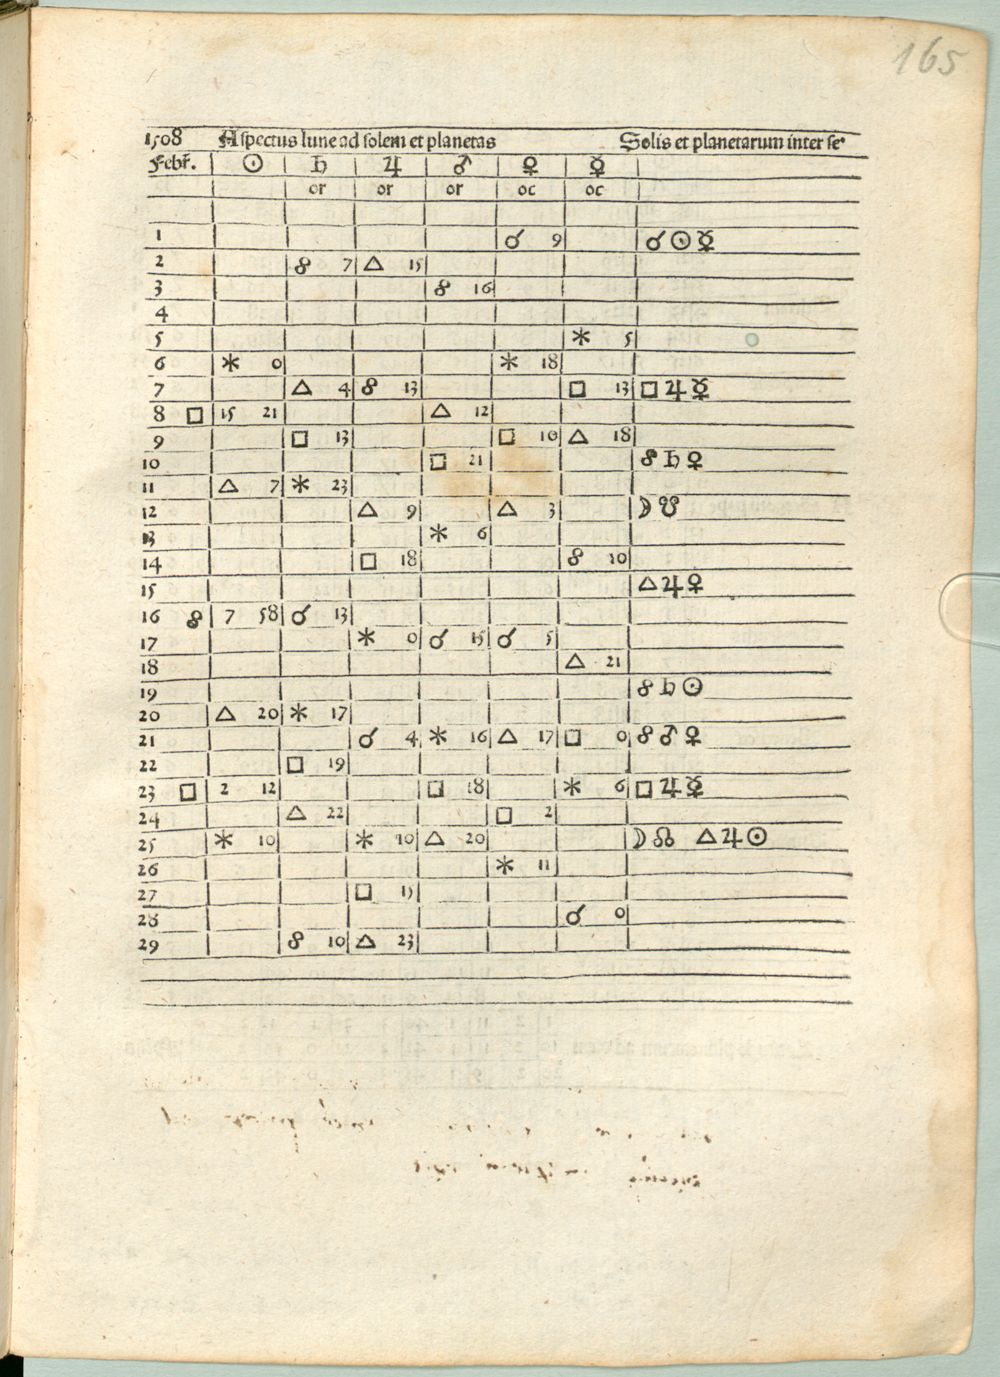 165
1508 Aspectus lune ad solem et planetas Solis et planetarum inter se
Febr. ☉ ♄ ♃ ♂ ♀ ☿
or or or oc oc
1 ☌ 9 ☌ ☉ ☿
2 ☍ 7 △ 15
3 ☍ 16
4
5 ⚹ 5
6 ⚹ 0 ⚹ 18
7 △ 4 ☍ 13 □ 13 □ ♃ ☿
8 □ 15 21 △ 12
9 □ 13 □ 10 △ 18
10 □ 21 ☍ ♄ ♀
11 △ 7 ⚹ 23
12 △ 9 △ 3 ☽ ☋
13 ⚹ 6
14 □ 18 ☍ 10
15 △ ♃ ♀
16 ☍ 7 58 ☌ 13
17 ⚹ 0 ☌ 15 ☌ 5
18 △ 21
19 ☍ ♄ ☉
20 △ 20 ⚹ 17
21 ☌ 4 ⚹ 16 △ 17 □ 0 ☍ ♂ ♀
22 □ 19
23 □ 2 12 □ 18 ⚹ 6 □ ♃ ☿
24 △ 22 □ 2
25 ⚹ 10 ⚹ 10 △ 20 ☽ ☊ △ ♃ ☉
26 ⚹ 11
27 □ 15
28 ☌ 0
29 ☍ 10 △ 23